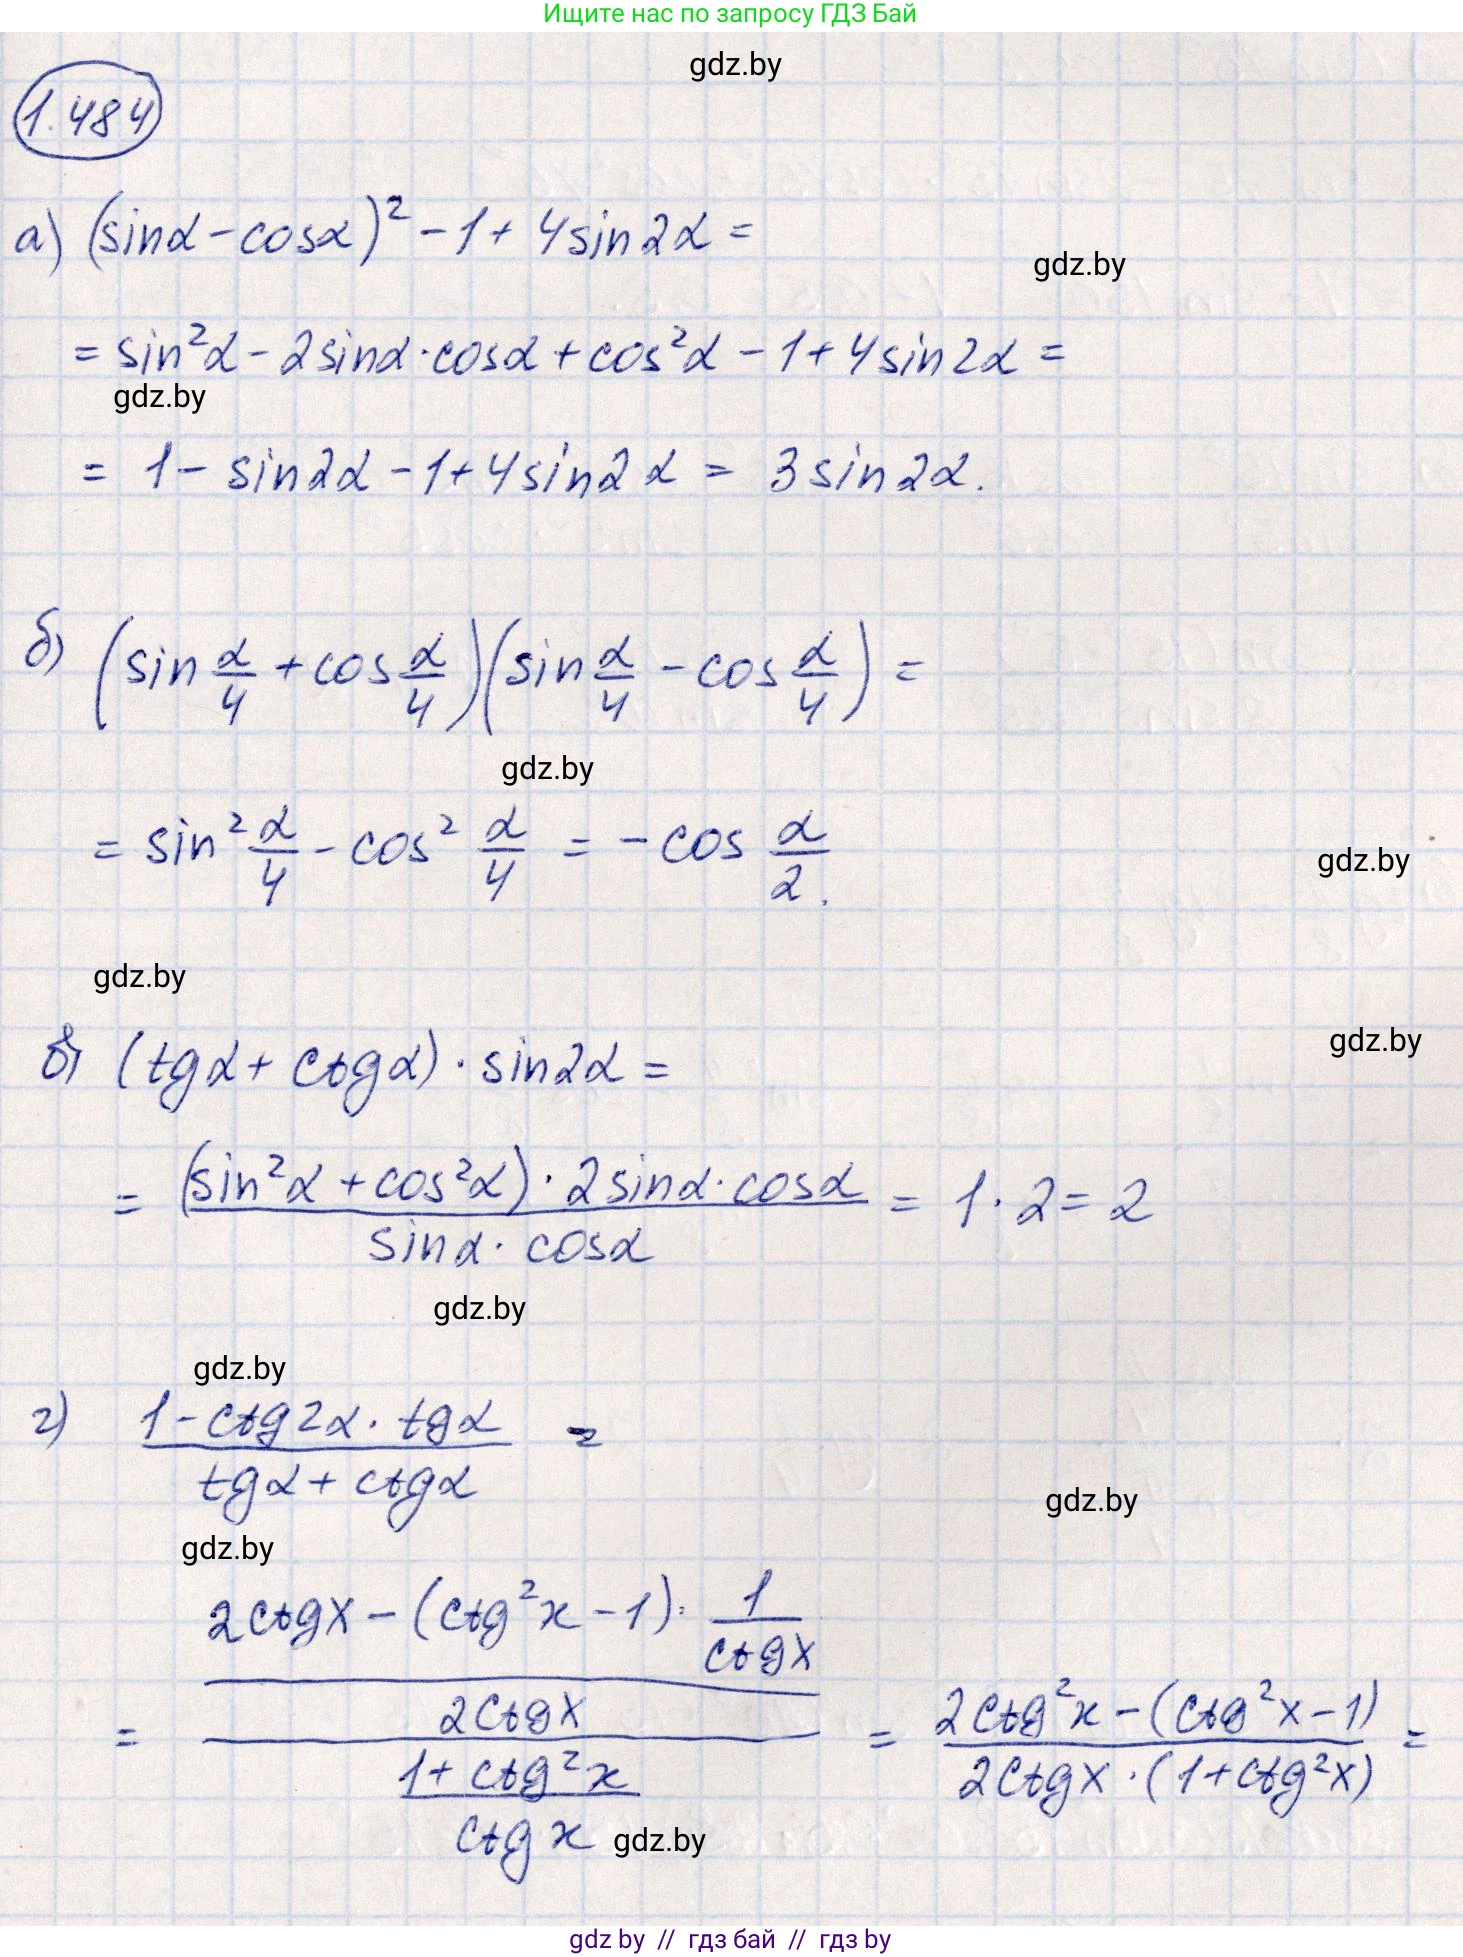 Ищите нас по запросу ГДЗ Бай
gdz.by
1.484
а) (sinα - cosα)² - 1 + 4sin2α =
gdz.by
= sin²α - 2sinα·cosα + cos²α - 1 + 4sin2α =
gdz.by
= 1 - sin2α - 1 + 4sin2α = 3sin2α.
б) (sin α/4 + cos α/4)(sin α/4 - cos α/4) =
gdz.by
= sin² α/4 - cos² α/4 = -cos α/2.
gdz.by
gdz.by
gdz.by
в) (tgα + ctgα) · sin2α =
= (sin²α + cos²α) · 2sinα·cosα / sinα·cosα = 1·2 = 2
gdz.by
gdz.by
г) 1 - ctg2α · tgα / tgα + ctgα =
gdz.by
gdz.by
= 2ctgx - (ctg²x - 1) · 1/ctgx / 2ctgx / 1 + ctg²x / ctgx = 2ctg²x - (ctg²x - 1) / 2ctgx · (1 + ctg²x) =
gdz.by
gdz.by // гдз бай // гдз by